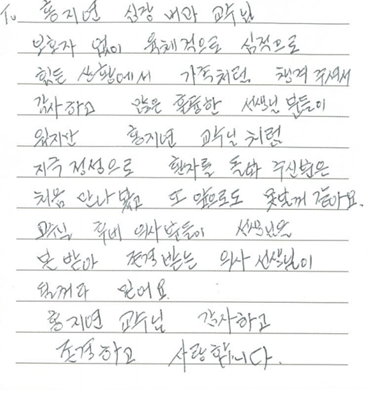 To 홍지연 심장 내과 교수님
보호자 없이 육체적으로 심적으로
힘든 상황에서 가족처럼 챙겨 주셔서
감사하고 많은 훌륭한 선생님 분들이
있지만 홍지연 교수님 처럼
지극 정성으로 환자를 돌봐 주신분은
처음 만나 봤고 또 앞으로도 못만날께 같아요.
교수님 후배 의사분들이 선생님을
본 받아 존경 받는 의사 선생님이
될꺼라 믿어요
홍지연 교수님 감사하고
존경하고 사랑합니다.